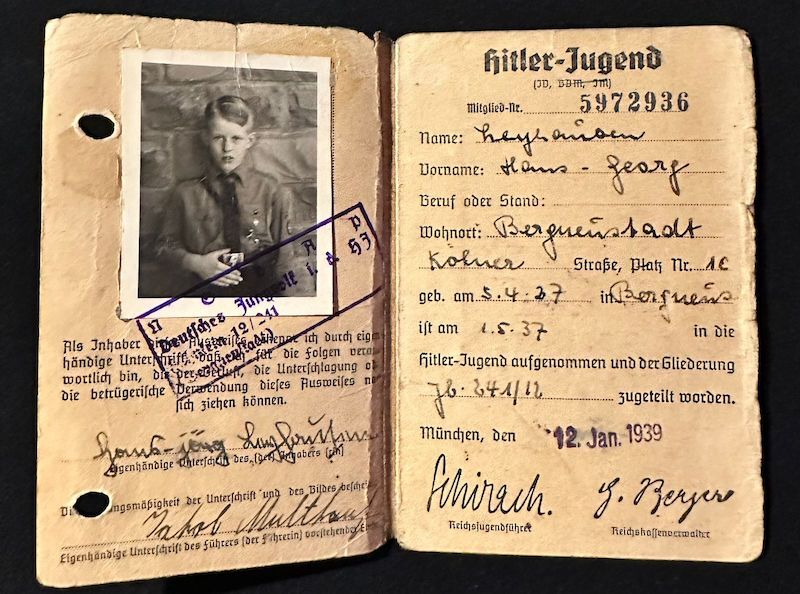 N S D A P
Deutsches Jungvolk i. d. HJ
12/241
Als Inhaber dieses Ausweises erkenne ich durch eigen
händige Unterschrift, daß ich für die Folgen veran
wortlich bin, die der Verlust, die Unterschlagung o
die betrügerische Verwendung dieses Ausweises na
sich ziehen können.
Hans-
Eigenhändige Unterschrift des (der) Inhabers (rin)
der Unterschrift und des Bildes beschei
Jakob
Eigenhändige Unterschrift des Führers (der Führerin) vorstehender
Hitler-Jugend
(JV, BDM, JM)
Mitglied-Nr. 5972936
Name: Leyhausen
Vorname: Hans-Georg
Beruf oder Stand:
Wohnort: Bergneustadt
Kölner Straße, Platz Nr. 1c
geb. am 5.4.27 in Bergneus
ist am 1.5.37 in die
Hitler-Jugend aufgenommen und der Gliederung
Jb. 241/12 zugeteilt worden.
München, den 12. Jan. 1939
Schirach. G. Berger
Reichsjugendführer Reichskassenverwalter